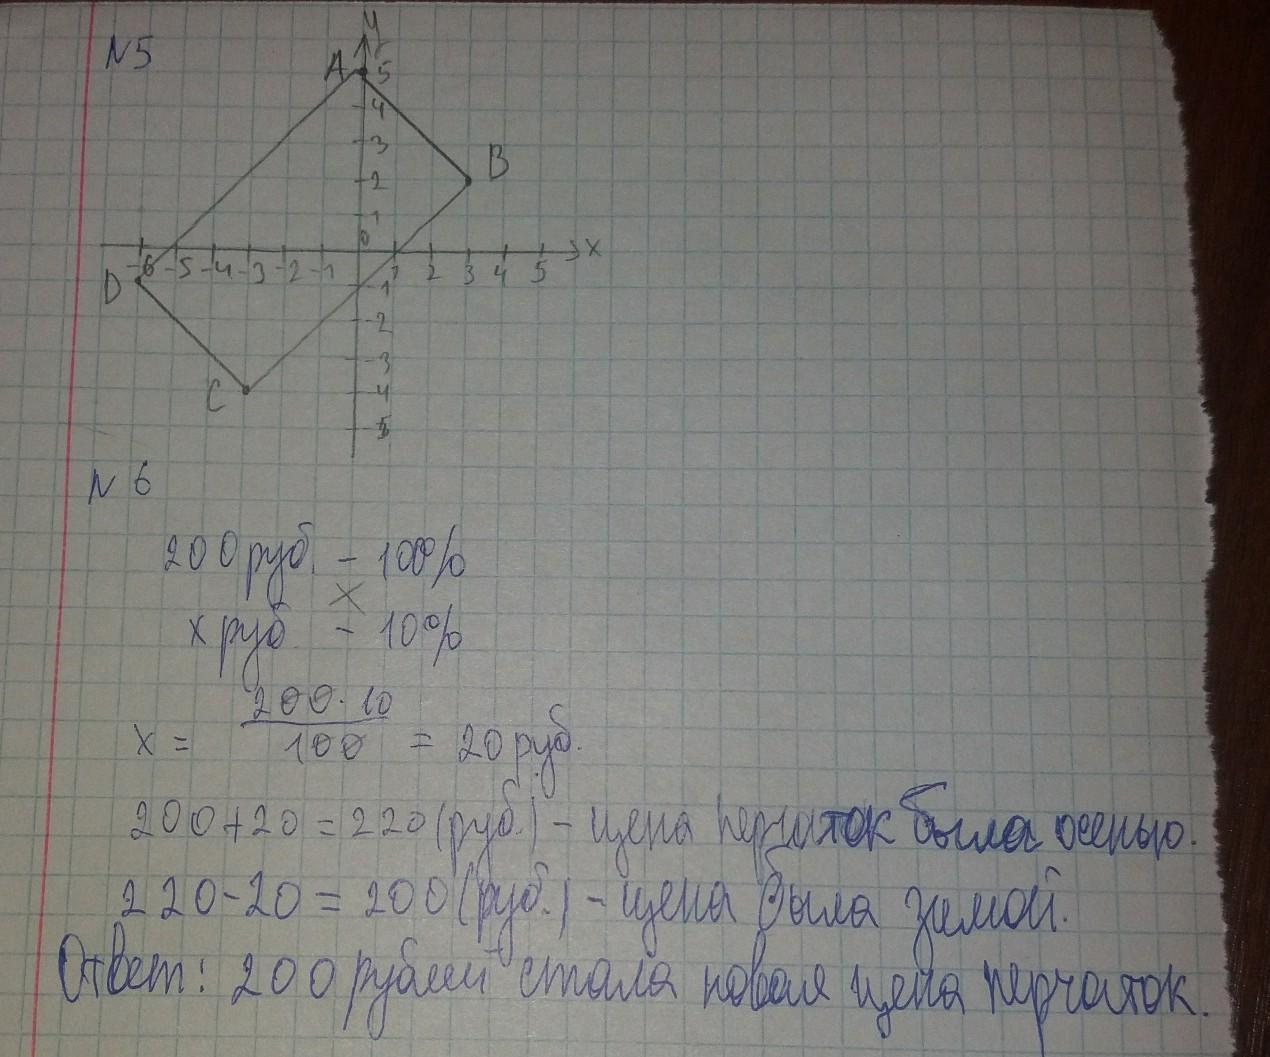 N5
y
A 5
4
3
B
2
1
0
-6 -5 -4 -3 -2 -1 1 2 3 4 5 x
D
-1
-2
-3
C -4
-5
N 6
200 руб. - 100%
х
х руб - 10%
200 · 10
х = 100 = 20 руб.
200 + 20 = 220 (руб.) - цена перчаток была осенью.
220 - 20 = 200 (руб.) - цена была зимой.
Ответ: 200 рублей стала новая цена перчаток.